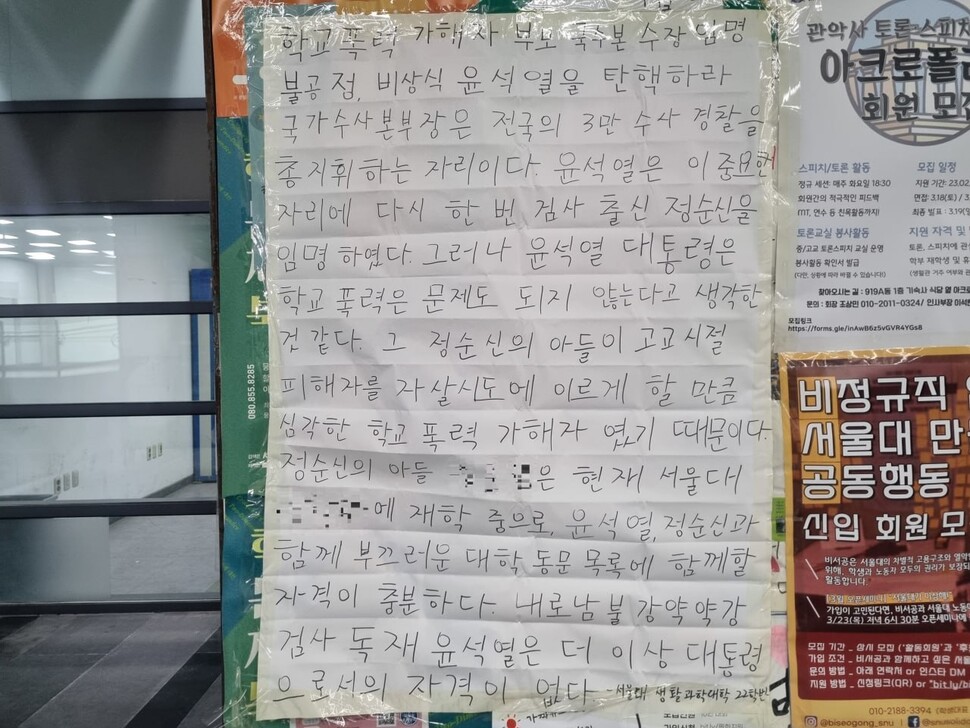 학교폭력 가해자 부모 국수본 수장 임명
불공정, 비상식 윤석열을 탄핵하라
국가수사본부장은 전국의 3만 수사 경찰을
총지휘하는 자리이다. 윤석열은 이 중요한
자리에 다시 한 번 검사 출신 정순신을
임명 하였다. 그러나 윤석열 대통령은
학교 폭력은 문제도 되지 않는다고 생각한
것 같다. 그 정순신의 아들이 고교시절
피해자를 자살시도에 이르게 할 만큼
심각한 학교 폭력 가해자 였기 때문이다.
정순신의 아들 은 현재 서울대
에 재학 중으로, 윤석열, 정순신과
함께 부끄러운 대학 동문 목록에 함께할
자격이 충분하다. 내로남불 강약약강
검사 독재 윤석열은 더 이상 대통령
으로서의 자격이 없다 - 서울대 생활과학대학 22학번
080.855.8285
관악사 토론·스피치
아크로폴리
회원 모
스피치/토론 활동
정규 세션: 매주 화요일 18:30
회원간의 적극적인 피드백
MT, 연수 등 친목활동까지!
토론교실 봉사활동
중/고교 토론스피치 교실 운영
봉사활동 확인서 발급
(다만, 상황에 따라 바뀔 수 있습니다!)
모집 일정
지원 기간: 23.02
면접: 3.18(토) / 3
최종 발표: 3.19(
지원 자격 및
토론, 스피치에 관
학부 재학생 및 휴
찾아오시는 길 : 919A동 1층 기숙사 식당 옆 아크로
문의 : 회장 조상민 010-2011-0324/ 인사부장 이석
모집링크
https://forms.gle/inAwB6z5vGVR4YGs8
비정규직
서울대 만
공동행동
신입 회원 모
비서공은 서울대의 차별적 고용구조와 열악
위해, 학생과 노동자 모두의 권리가 보장되
활동합니다.
3월 오픈세미나
가입이 고민된다면, 비서공과 서울대 노동
3/23(목) 저녁 6시 30분 오픈세미나에
모집 기간 _ 상시 모집 ('활동회원'과 '후
가입 조건 _ 비서공과 함께하고 싶은 서울
문의 방법 _ 아래 연락처 or 인스타 DM
지원 방법 _ 신청링크(QR) or "bit.ly/bi
010-2188-3394 (학생대표
@biseogong_snu